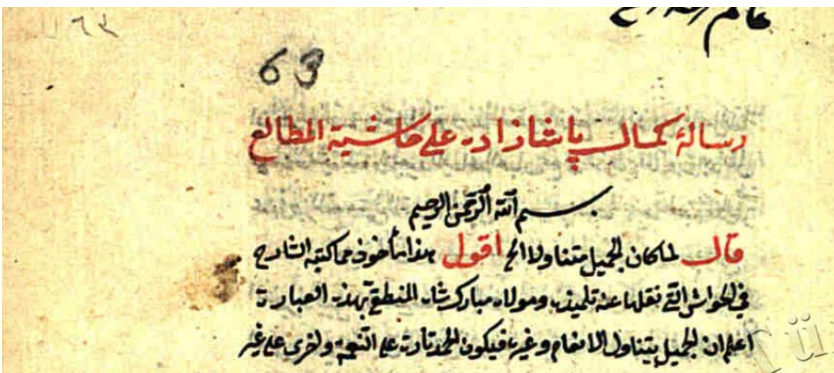 ٦٣
63
رسالۀ كمال پاشا زاده على حاشية المطالع
بسم الله الرحمن الرحيم
قال لما كان الجميل متناولا الخ اقول هذا مأخوذ مما كتبه الشارح
في الحواشي التي نقلها عنه تلميذه ومولاه مباركشاه المنطقي بهذه العبارة
اعلم ان الجميل يتناول الانعام وغيره فيكون الحمد تارة على النعمة واخرى على غير